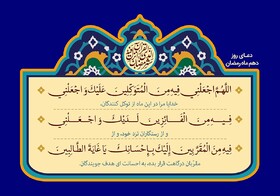 دعـای روز
دهم ماه رمضان
اللَّهُمَّ اجْعَلْنِي فِيهِ مِنَ الْمُتَوَكِّلِينَ عَلَيْكَ وَ اجْعَلْنِي
خدایا مرا در این ماه از توکل کنندگان،
فِيهِ مِنَ الْفَائِزِينَ لَدَيْكَ وَ اجْعَلْنِي
و از رستگاران نزد خود، و از
فِيهِ مِنَ الْمُقَرَّبِينَ إِلَيْكَ بِإِحْسَانِكَ يَا غَايَةَ الطَّالِبِينَ
مقربان درگاهت قرار بده، به احسانت ای هدف جویندگان.